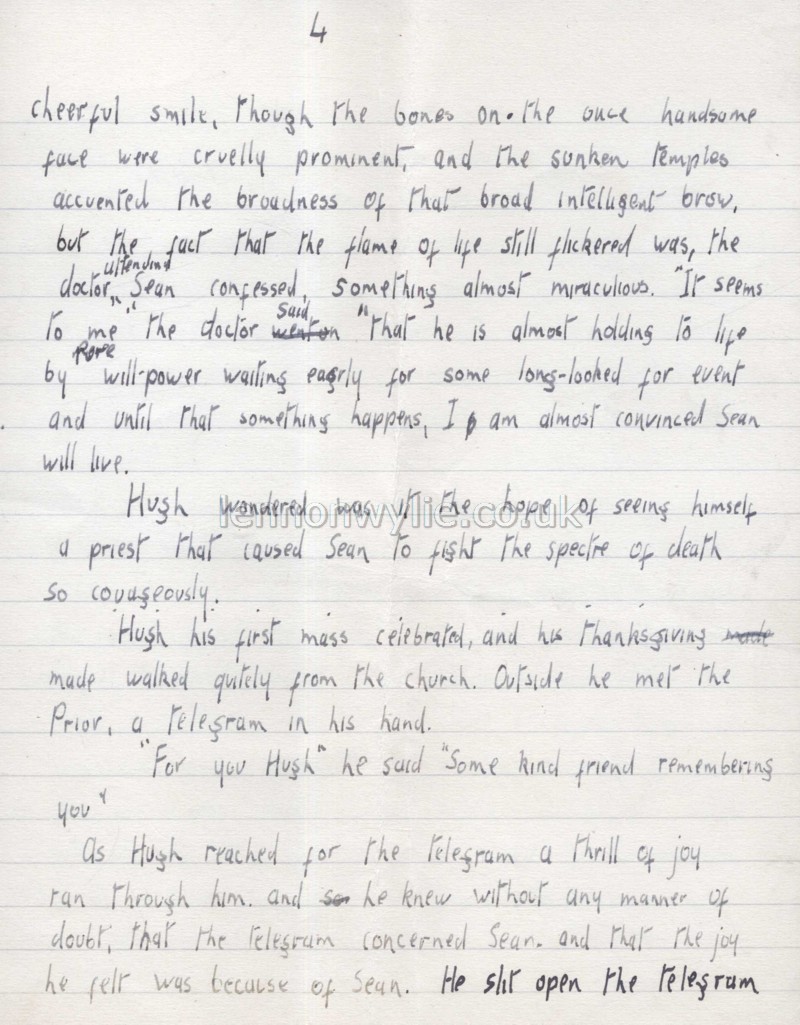 4
cheerful smile, though the bones on the once handsome
face were cruelly prominent, and the sunken temples
accuented the broadness of that broad intelligent brow,
but the fact that the flame of life still flickered was, the
attending
doctor, Sean confessed, something almost miraculous. "It seems
said
to me" the doctor went on "that he is almost holding to life
pure
by will-power waiting eagrly for some long-looked for event
and until that something happens, I am almost convinced Sean
will live.
Hugh wondered was it the hope of seeing himself
lennonwylie.co.uk
a priest that caused Sean to fight the spectre of death
so couageously.
Hugh his first mass celebrated, and his thanksgiving made
made walked quitely from the church. Outside he met the
Prior, a telegram in his hand.
"For you Hugh" he said "Some kind friend remembering
you"
As Hugh reached for the telegram a thrill of joy
ran through him. and so he knew without any manner of
doubt, that the telegram concerned Sean. and that the joy
he felt was because of Sean. He slit open the telegram